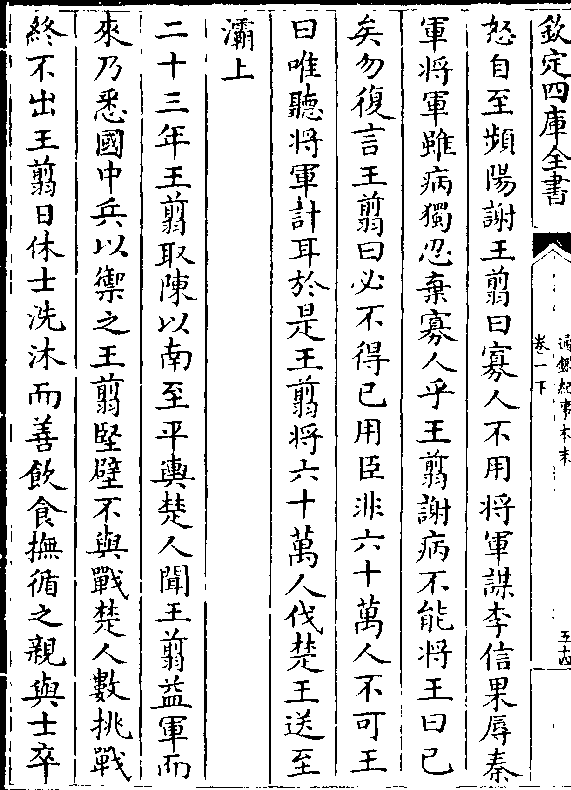 欽定四庫全書
通鑑紀事本末
卷一下
五十四
怒自至頻陽謝王翦曰寡人不用将軍謀李信果辱秦
軍将軍雖病獨忍棄寡人乎王翦謝病不能将王曰已
矣勿復言王翦曰必不得已用臣非六十萬人不可王
曰唯聽将軍計耳於是王翦将六十萬人伐楚王送至
灞上
二十三年王翦取陳以南至平輿楚人聞王翦益軍而
來乃悉國中兵以禦之王翦堅壁不與戰楚人數挑戰
終不出王翦日休士洗沐而善飲食撫循之親與士卒